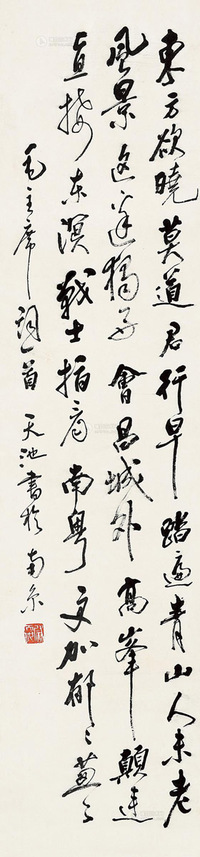 東方欲曉莫道君行早踏遍青山人未老
風景这边獨好會昌城外高峯顛連
直接东溟戰士指看南粤更加郁々葱々
毛主席詞一首 天池書於南京